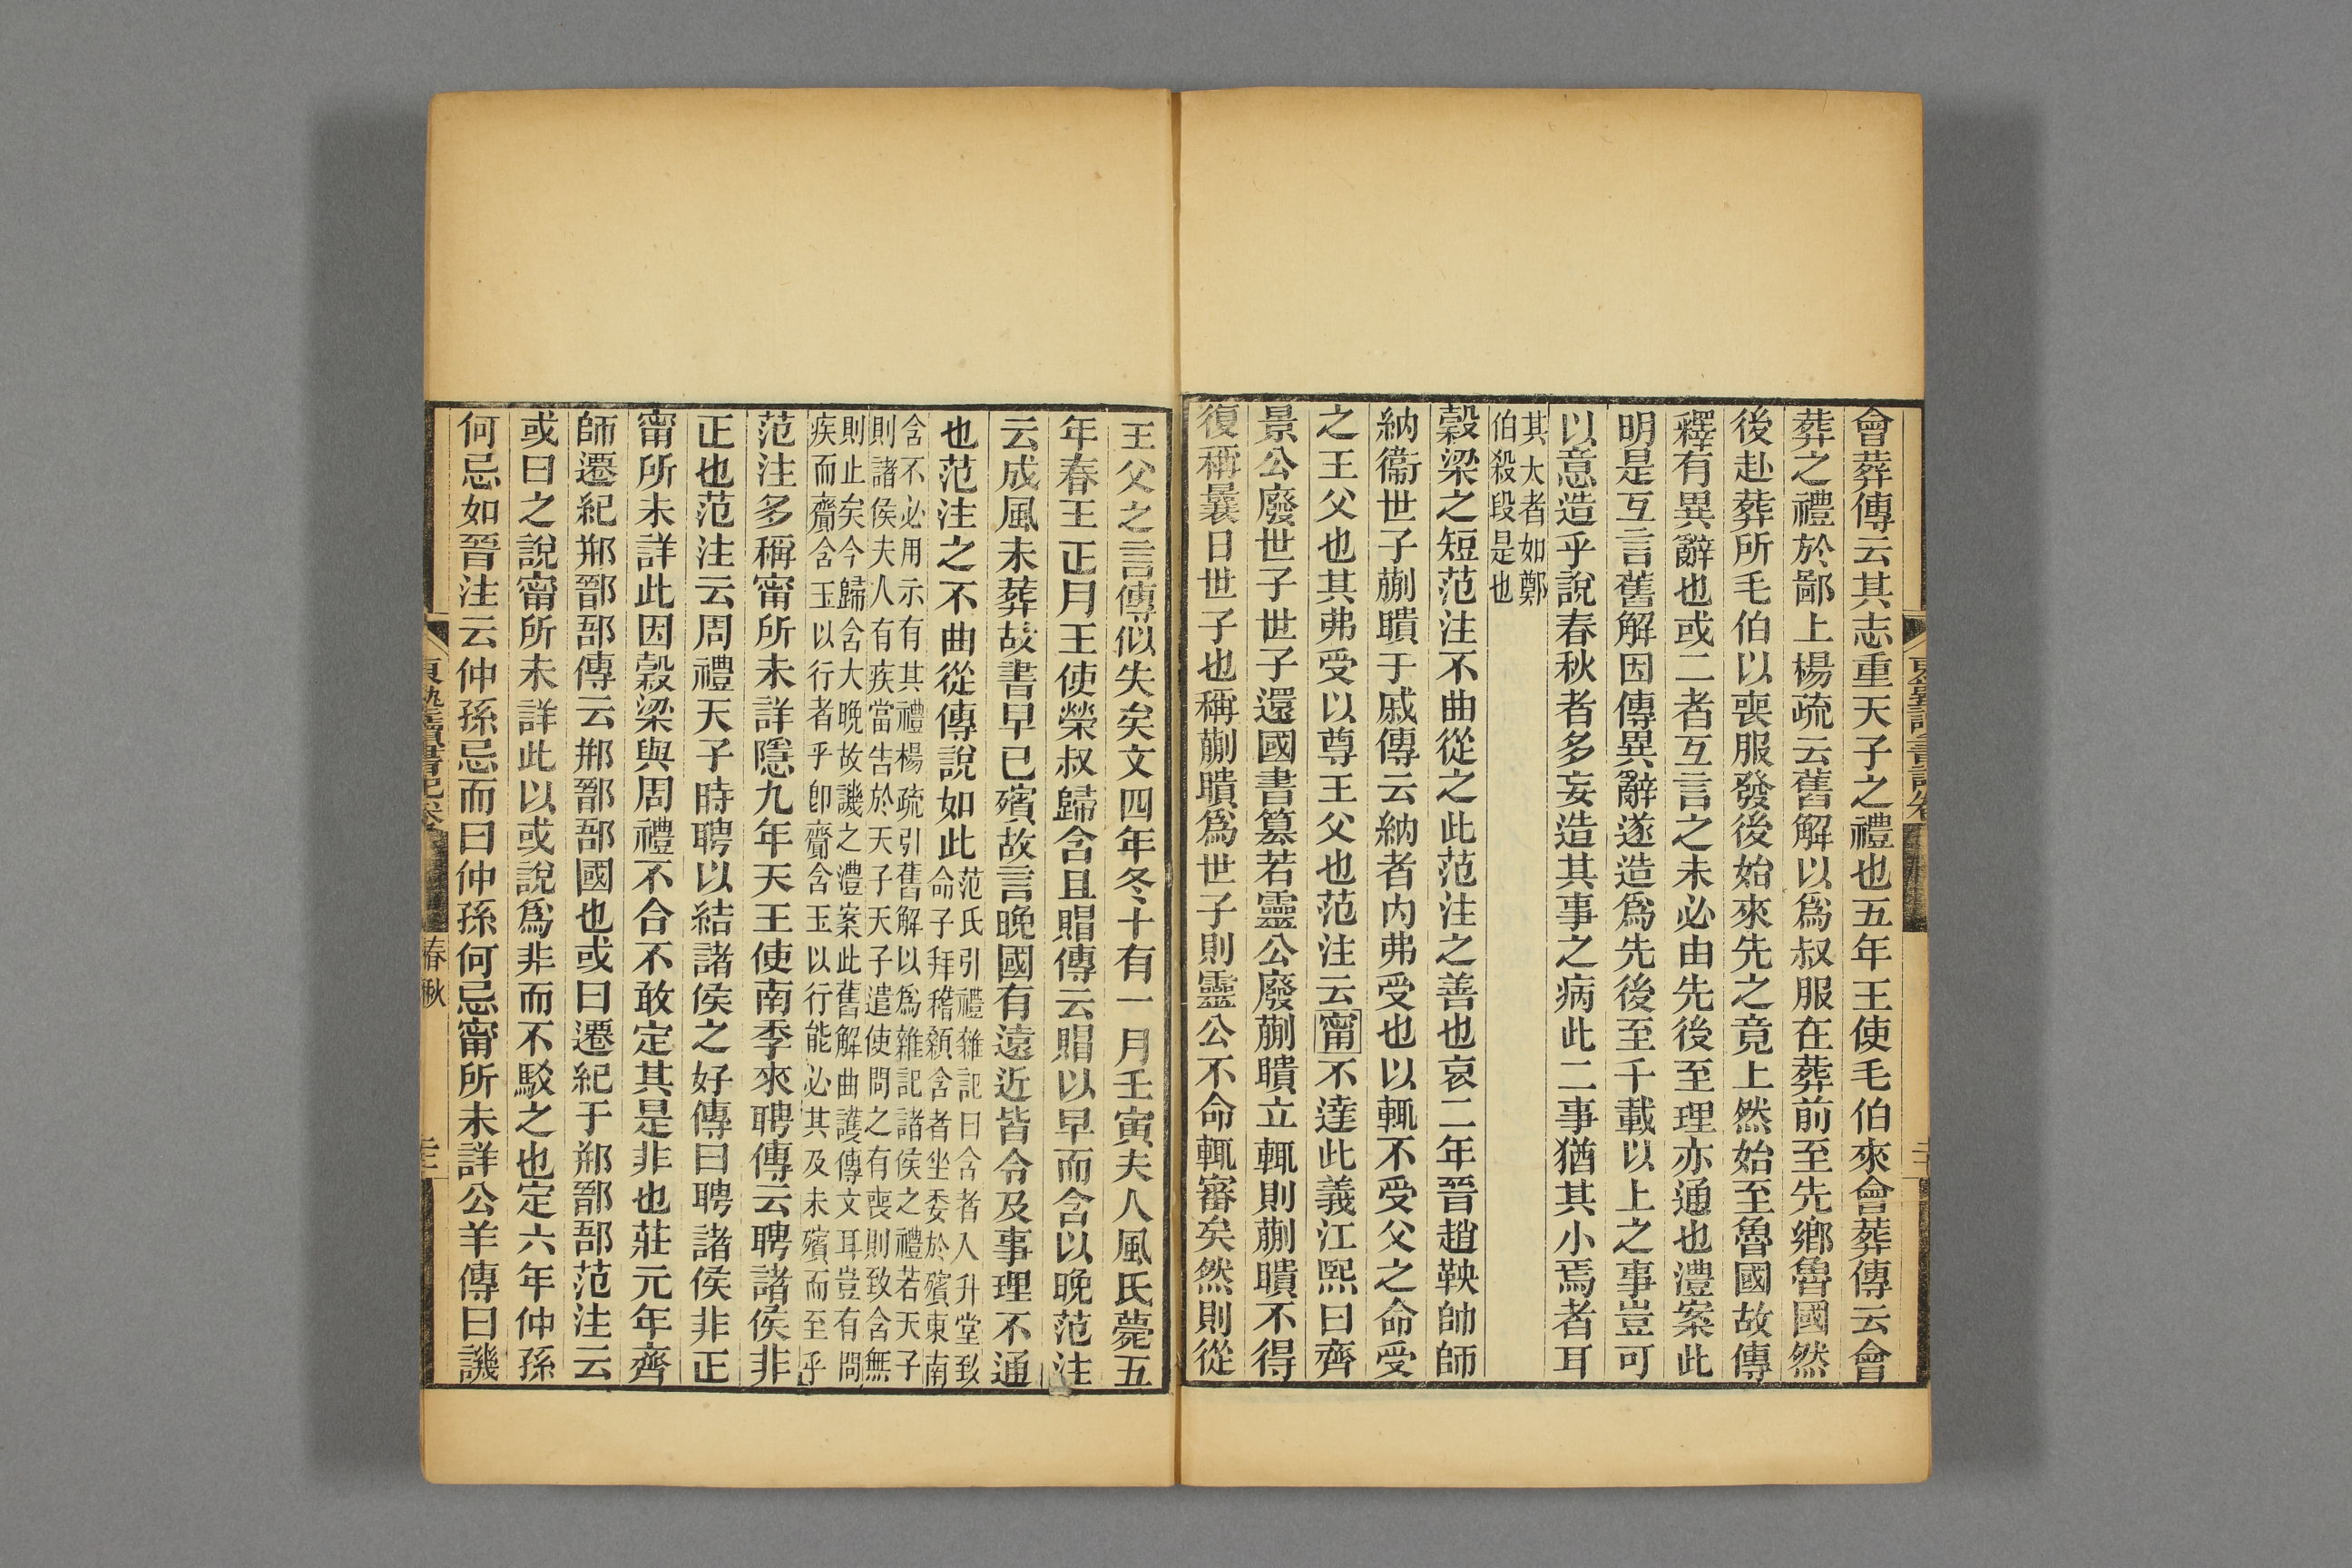 會葬傳云其志重天子之禮也五年王使毛伯來會葬傳云會
葬之禮於鄙上楊疏云舊解以爲叔服在葬前至先鄉魯國然
後赴葬所毛伯以喪服發後始來先之竟上然始至魯國故傳
釋有異辭也或二者互言之未必由先後至理亦通也澧案此
明是互言舊解因傳異辭遂造爲先後至千載以上之事豈可
以意造乎說春秋者多妄造其事之病此二事猶其小焉者耳
其大者如鄭
伯殺段是也
穀梁之短范注不曲從之此范注之善也哀二年晉趙鞅帥師
納衞世子蒯聵于戚傳云納者內弗受也以輒不受父之命受
之王父也其弗受以尊王父也范注云甯不達此義江熙曰齊
景公廢世子世子還國書篡若靈公廢蒯聵立輒則蒯聵不得
復稱曩日世子也稱蒯聵爲世子則靈公不命輒審矣然則從
王父之言傳似失矣文四年冬十有一月壬寅夫人風氏薨五
年春王正月王使榮叔歸含且賵傳云賵以早而含以晚范注
云成風未葬故書早已殯故言晚國有遠近皆令及事理不通
也范注之不曲從傳說如此
范氏引禮雜記曰含者入升堂致
命子拜稽顙含者坐委於殯東南
含不必用示有其禮楊疏引舊解以爲雜記諸侯之禮若天子
則諸侯夫人有疾當告於天子天子遣使問之有喪則致含無
則止矣今歸含大晚故譏之澧案此舊解曲護傳文耳豈有問
疾而齎含玉以行者乎卽齎含玉以行能必其及未殯而至乎
范注多稱甯所未詳隱九年天王使南季來聘傳云聘諸侯非
正也范注云周禮天子時聘以結諸侯之好傳曰聘諸侯非正
甯所未詳此因穀梁與周禮不合不敢定其是非也莊元年齊
師遷紀郱鄑郚傳云郱鄑郚國也或曰遷紀于郱鄑郚范注云
或曰之說甯所未詳此以或說爲非而不駁之也定六年仲孫
何忌如晉注云仲孫忌而曰仲孫何忌甯所未詳公羊傳曰譏
東塾讀書記卷
春秋